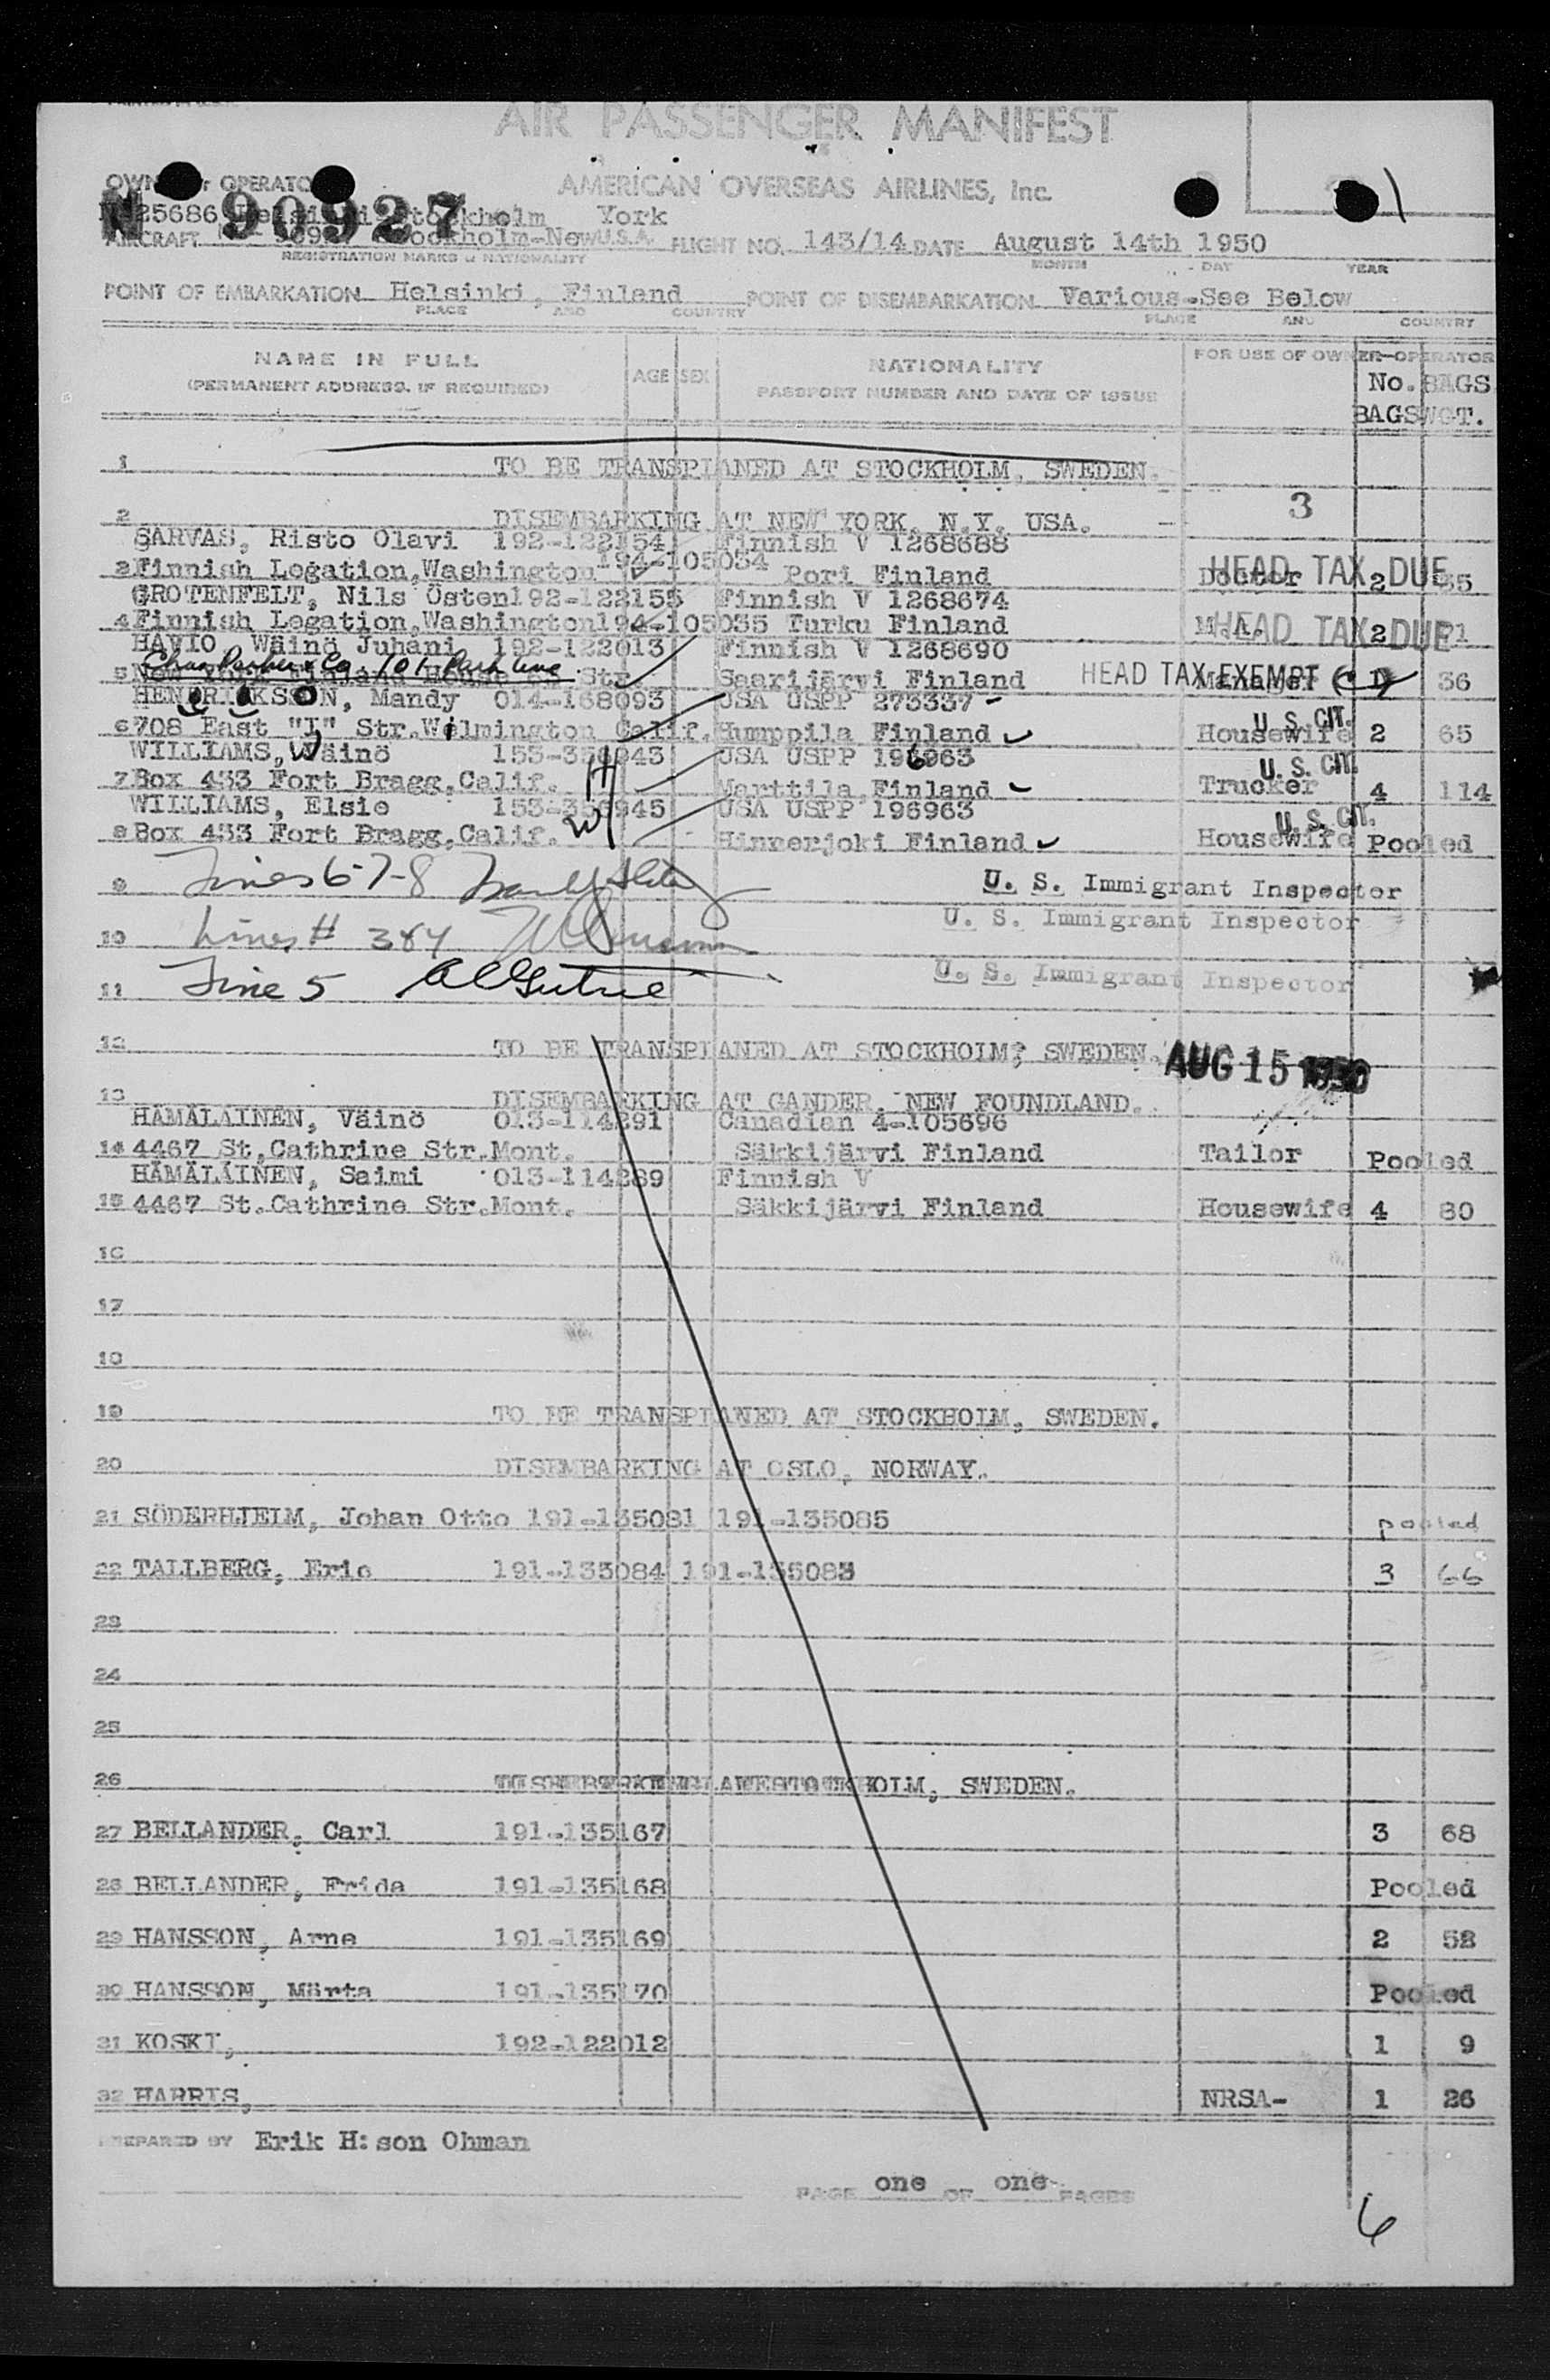 AIR PASSENGER MANIFEST
OWNER or OPERATOR AMERICAN OVERSEAS AIRLINES, Inc.
N 90927
25686 Helsinki-Stockholm York
AIRCRAFT Stockholm-New U.S.A. FLIGHT NO. 143/14 DATE August 14th 1950
REGISTRATION MARKS & NATIONALITY MONTH DAY YEAR
POINT OF EMBARKATION Helsinki, Finland POINT OF DISEMBARKATION Various-See Below
PLACE AND COUNTRY PLACE AND COUNTRY
NAME IN FULL AGE SEX NATIONALITY FOR USE OF OWNER-OPERATOR
(PERMANENT ADDRESS, IF REQUIRED) PASSPORT NUMBER AND DATE OF ISSUE No. BAGS
BAGS WGT.
1 TO BE TRANSPLANED AT STOCKHOLM, SWEDEN.
3
2 DISEMBARKING AT NEW YORK, N.Y. USA.
SARVAS, Risto Olavi 192-122154 Finnish V 1268688
194-105034
3 Finnish Legation, Washington Pori Finland Doctor HEAD TAX DUE 2 35
GROTENFELT, Nils Östen 192-122155 Finnish V 1268674
4 Finnish Legation, Washington 194-105035 Turku Finland M.A. HEAD TAX DUE 2
HAVIO Wäinö Juhani 192-122013 Finnish V 1268690
101 Park Ave
5 New York Finland House Str Saarijärvi Finland HEAD TAX EXEMPT Manager 1 36
HENDRIKSSON, Mandy 014-168093 USA USPP 273337-
6 708 East "I" Str. Wilmington Calif. Humppila Finland Housewife U. S. CIT. 2 65
WILLIAMS, Wäinö 153-356943 USA USPP 196963
7 Box 433 Fort Bragg, Calif. Marttila Finland Trucker U. S. CIT. 4 114
WILLIAMS, Elsie 153-356945 USA USPP 196963
8 Box 433 Fort Bragg, Calif. Hinnerjoki Finland Housewife U. S. CIT. Pooled
9 Lines 6-7-8 U. S. Immigrant Inspector
10 Lines # 3&4 U. S. Immigrant Inspector
11 Line 5 U. S. Immigrant Inspector
12 TO BE TRANSPLANED AT STOCKHOLM, SWEDEN. AUG 15 1950
13 DISEMBARKING AT GANDER, NEW FOUNDLAND.
HÄMÄLÄINEN, Väinö 013-114291 Canadian 4-105696
14 4467 St. Cathrine Str. Mont. Säkkijärvi Finland Tailor Pooled
HÄMÄLÄINEN, Saimi 013-114289 Finnish V
15 4467 St. Cathrine Str. Mont. Säkkijärvi Finland Housewife 4 80
16
17
18
19 TO BE TRANSPLANED AT STOCKHOLM, SWEDEN.
20 DISEMBARKING AT OSLO, NORWAY.
21 SÖDERHJELM, Johan Otto 191-135081 191-135085 pooled
22 TALLBERG, Eric 191-135084 191-135083 3 66
23
24
25
26 STOCKHOLM, SWEDEN.
27 BELLANDER, Carl 191-135167 3 68
28 BELLANDER, Frida 191-135168 Pooled
29 HANSSON, Arne 191-135169 2 58
30 HANSSON, Märta 191-135170 Pooled
31 KOSKI, 192-122012 1 9
32 HARRIS, NRSA- 1 26
PREPARED BY Erik H:son Ohman
PAGE one OF one PAGES
6